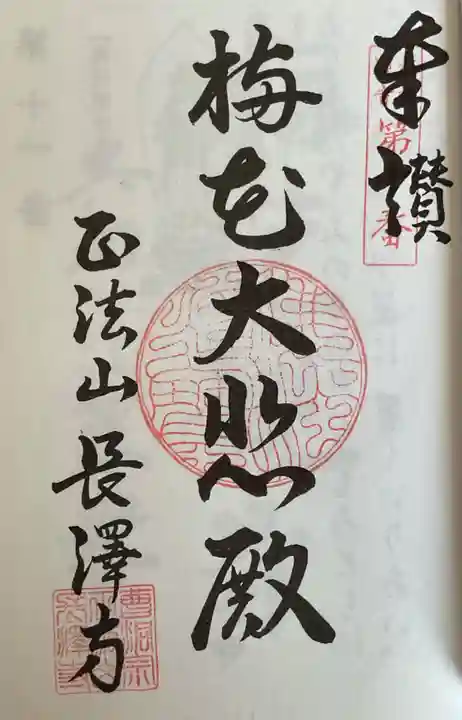 奉讃
第番
梅花大悲殿
正法山 長澤寺
曹洞宗